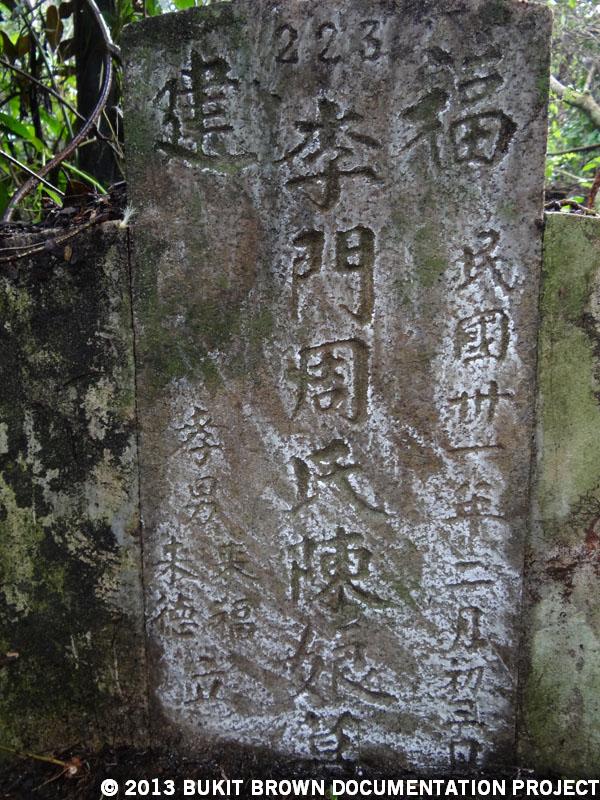 223
福建
民國卅一年二月初五日
李門周氏陳娘
孝男
來福
來德
立
© 2013 BUKIT BROWN DOCUMENTATION PROJECT